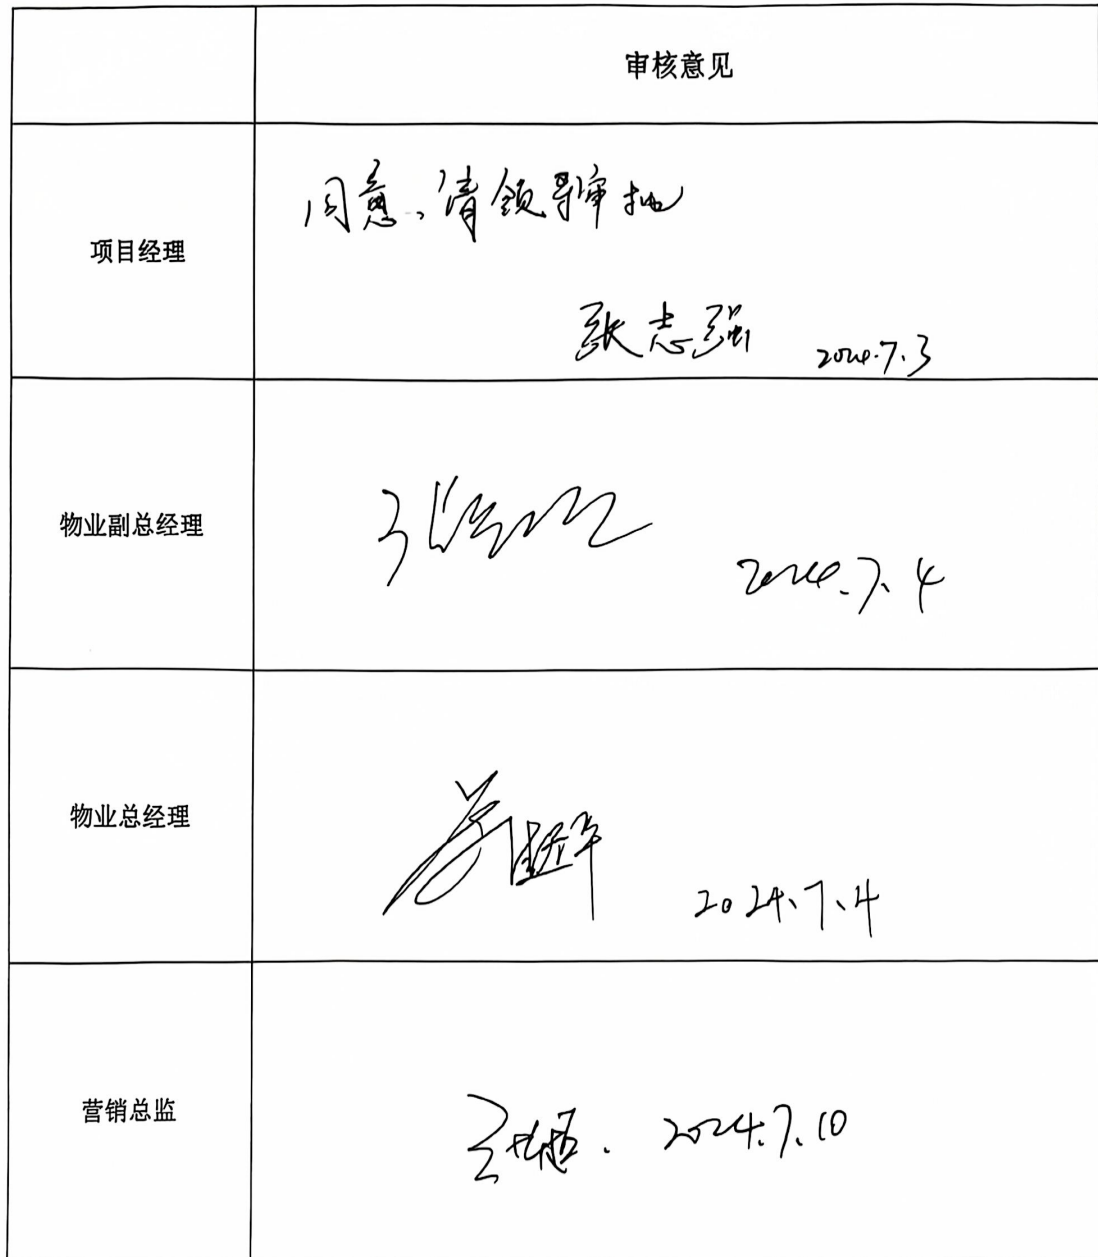 审核意见
项目经理
同意、请领导审批
张志强 2024.7.3
物业副总经理
2024.7.4
物业总经理
2024.7.4
营销总监
2024.7.10